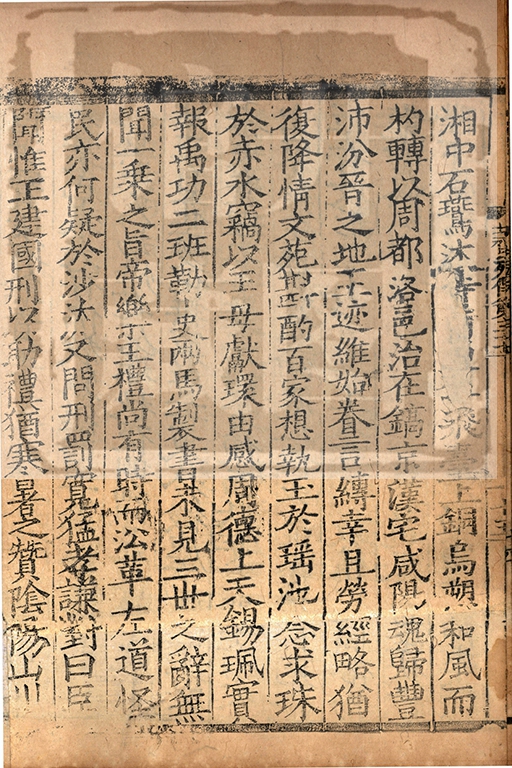 湘中石鷰沐時雨而羣飛臺上銅烏愬和風而
杓轉以周都洛邑治在鎬京漢宅咸陽魂歸豐
沛汾晉之地王迹維始眷言巡幸且勞經略猶
復降情文苑斟酌百家想執玉於瑶池念求珠
於赤水竊以王母獻環由感周德上天錫珮實
報禹功二班勒史兩馬製書未見三世之辭無
聞一乗之旨帝樂王禮尚有時而㳂革左道怪
民亦何疑於沙汰又問刑罰寬猛孝謙對曰臣
聞惟王建國刑以助禮猶寒暑之贊陰陽山川